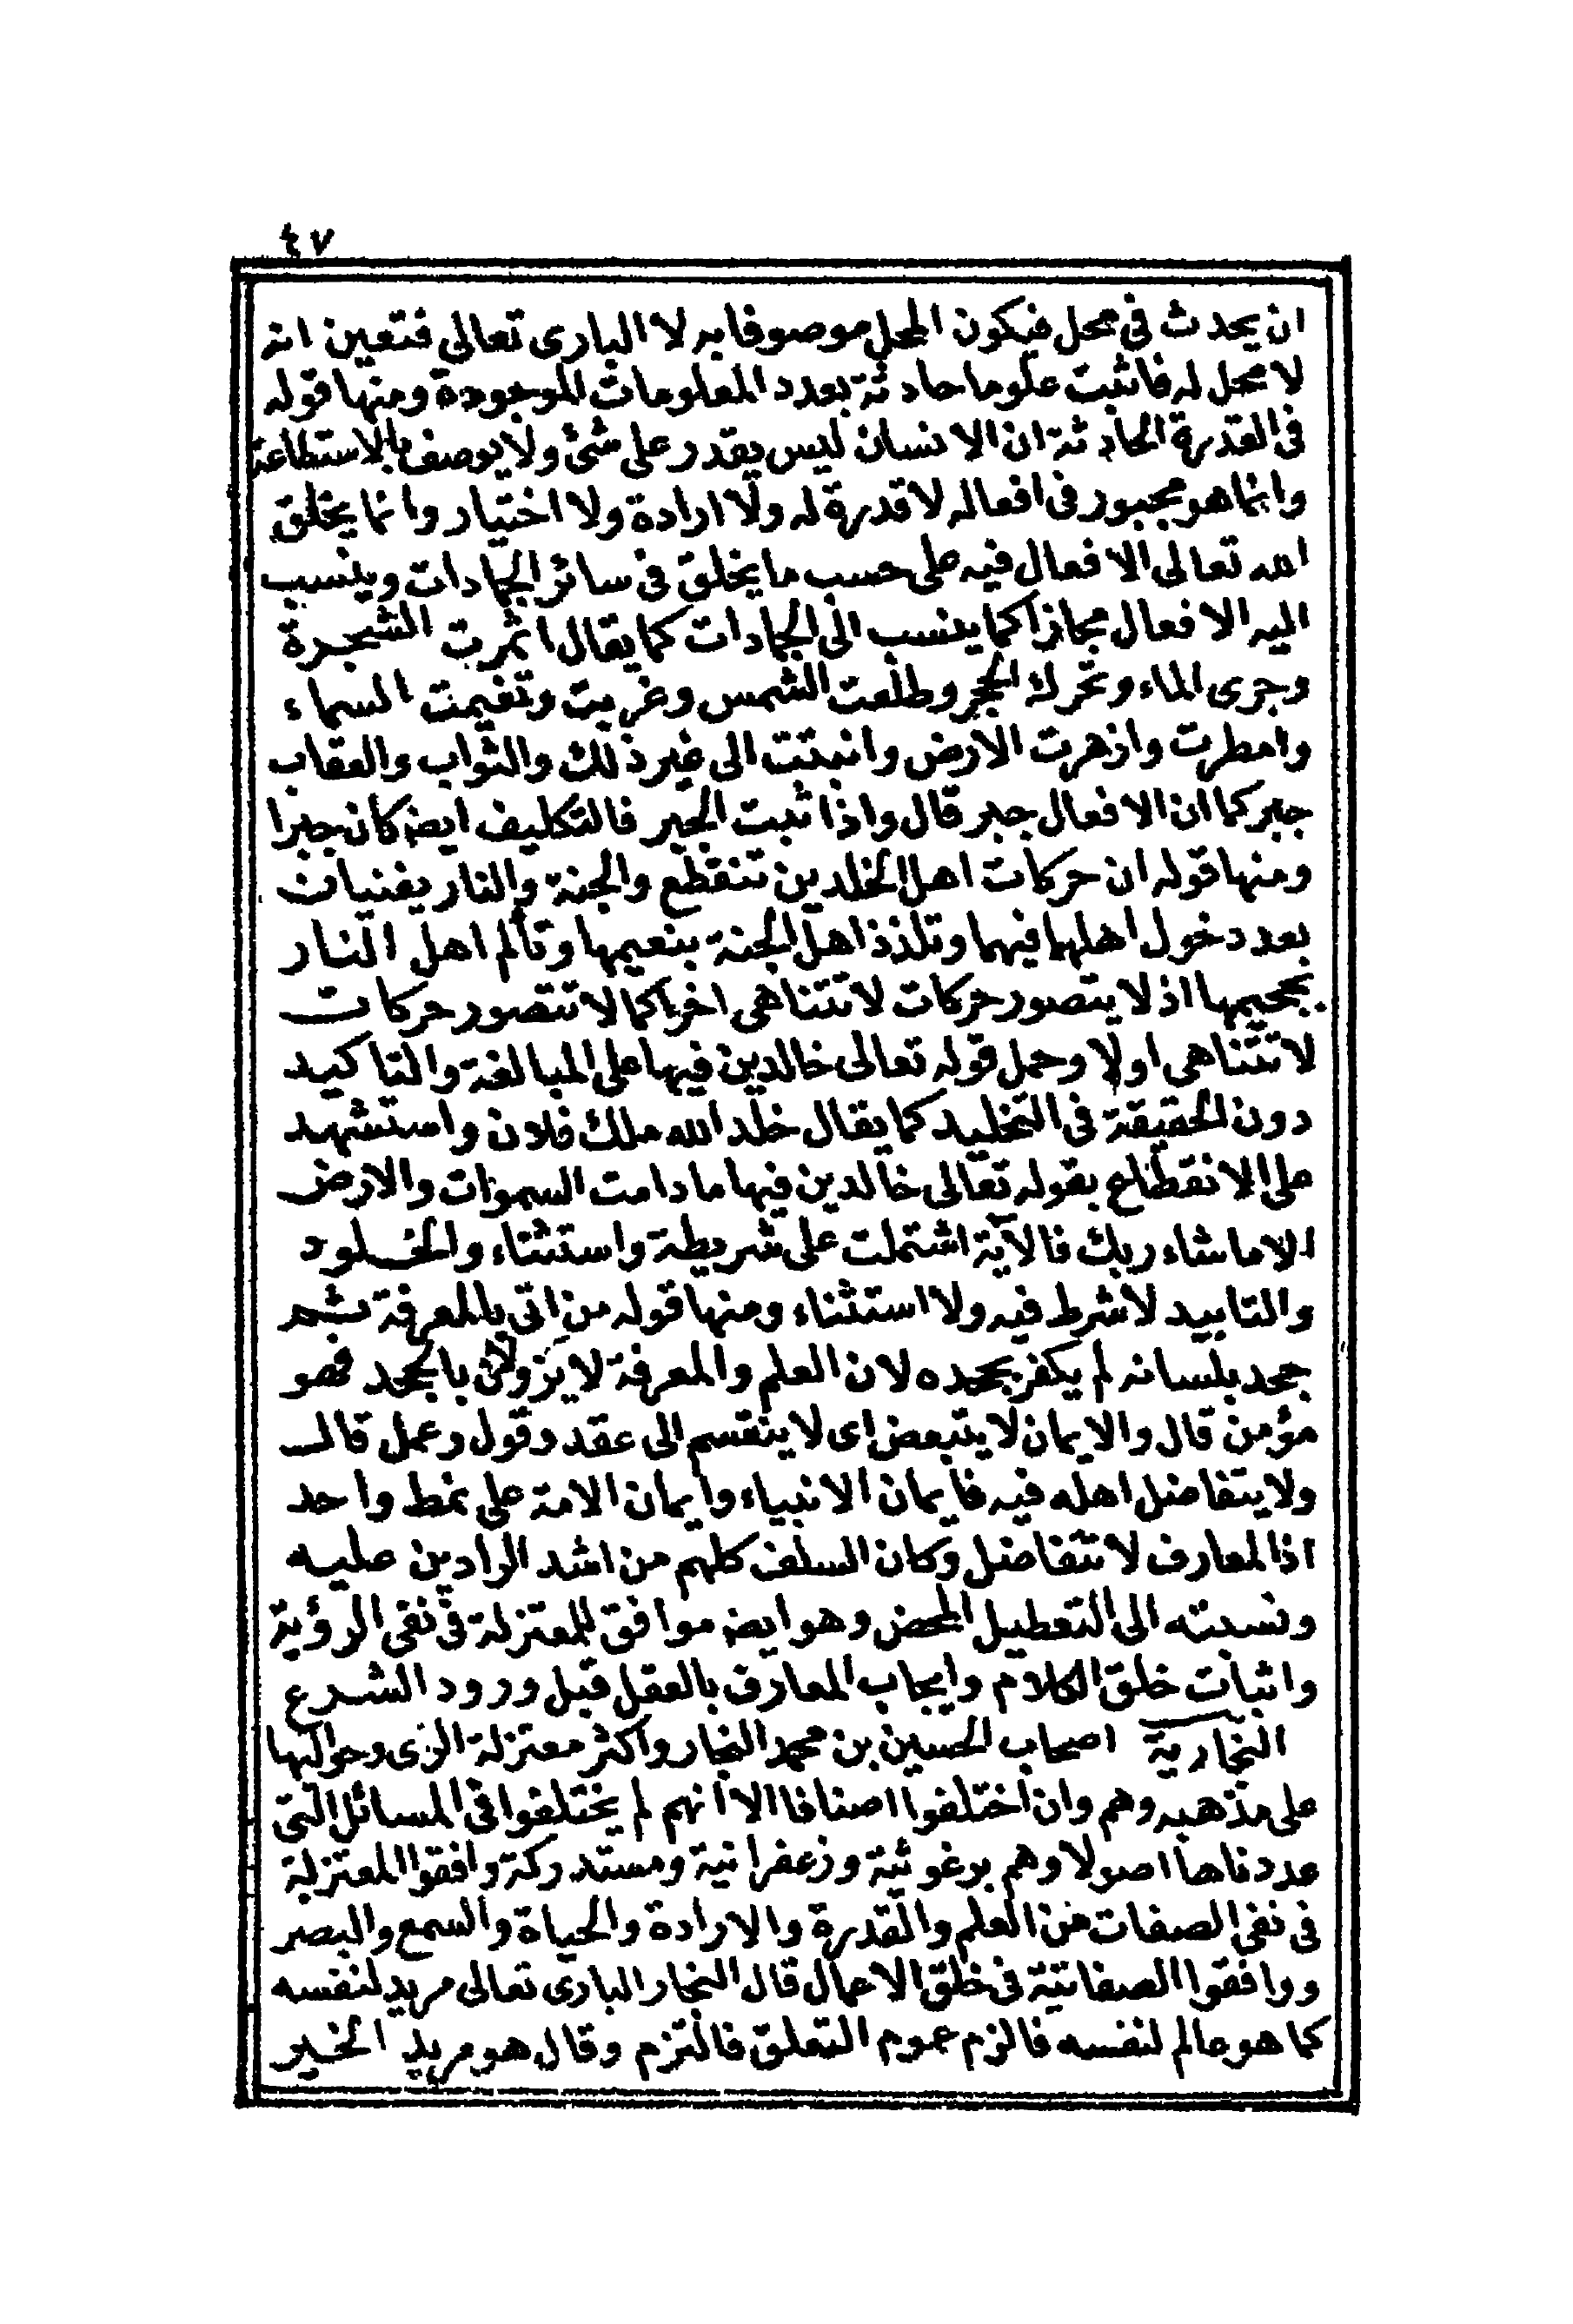 ٤٧
ان يحدث فى محل فيكون المحل موصوفا به لا البارى تعالي فتعين انه
لا محل له فاثبت علوما حادثة بعدد المعلومات الموجودة ومنها قوله
فى القدرة الحادثة ان الانسان ليس يقدر على شئ ولا يوصف بالاستطاعة
وانما هو مجبور فى افعاله لا قدرة له ولا ارادة ولا اختيار وانما يخلق
الله تعالى الافعال فيه على حسب ما يخلق فى سائر الجمادات وينسب
اليه الافعال مجازا كما ينسب الى الجمادات كما يقال اثمرت الشجرة
وجرى الماء وتحرك الحجر وطلعت الشمس وغربت وتغيمت السماء
وامطرت وازهرت الارض وانبتت الى غير ذلك والثواب والعقاب
جبر كما ان الافعال جبر قال واذا ثبت الجبر فالتكليف ايضا كان جبرا
ومنها قوله ان حركات اهل الخلدين تنقطع والجنة والنار يفنيان
بعد دخول اهلهما فيهما وتلذذ اهل الجنة بنعيمها وتألم اهل النار
بجحيمها اذ لا يتصور حركات لا تتناهى اخرا كما لا تتصور حركات
لا تتناهى اولا وحمل قوله تعالى خالدين فيها على المبالغة والتاكيد
دون الحقيقة فى التخليد كما يقال خلد الله ملك فلان واستشهد
على الانقطاع بقوله تعالى خالدين فيها ما دامت السموات والارض
الا ما شاء ربك فالآية اشتملت على شريطة واستثناء والخلود
والتابيد لا شرط فيه ولا استثناء ومنها قوله من اتى بالمعرفة ثم
جحد بلسانه لم يكفر بجحده لان العلم والمعرفة لا يزولان بالجحد فهو
مؤمن قال والايمان لا يتبعض اى لا ينقسم الى عقد وقول وعمل قال
ولا يتفاضل اهله فيه فايمان الانبياء وايمان الامة على نمط واحد
اذ المعارف لا تتفاضل وكان السلف كلهم من اشد الرادين عليه
ونسبته الى التعطيل المحض وهو ايضا موافق للمعتزلة فى نفى الرؤية
واثبات خلق الكلام وايجاب المعارف بالعقل قبل ورود الشرع
النجارية اصحاب الحسين بن محمد النجار واكثر معتزلة الرى وحواليها
على مذهبه وهم وان اختلفوا اصنافا الا انهم لم يختلفوا فى المسائل التى
عددناها اصولا وهم برغوثية وزعفرانية ومستدركة وافقوا المعتزلة
فى نفى الصفات من العلم والقدرة والارادة والحياة والسمع والبصر
ووافقوا الصفاتية فى خلق الاعمال قال النجار البارى تعالى مريد لنفسه
كما هو عالم لنفسه فالزم عموم التعلق فالتزم وقال هو مريد الخير